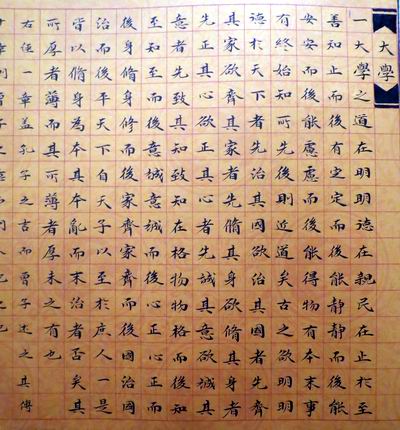 大學
一大學之道在明明德在親民在止於至
善知止而後有定定而後能靜靜而後能
安安而後能慮慮而後能得物有本末事
有終始知所先後則近道矣古之欲明明
德於天下者先治其國欲治其國者先齊
其家欲齊其家者先脩其身欲脩其身者
先正其心欲正其心者先誠其意欲誠其
意者先致其知致知在格物物格而後知
至知至而後意誠意誠而後心正心正而
後身脩身脩而後家齊家齊而後國治國
治而後天下平自天子以至於庶人一是
皆以脩身為本其本亂而末治者否矣其
所厚者薄而其所薄者厚未之有也
右經一章蓋孔子之言而曾子述之其傳